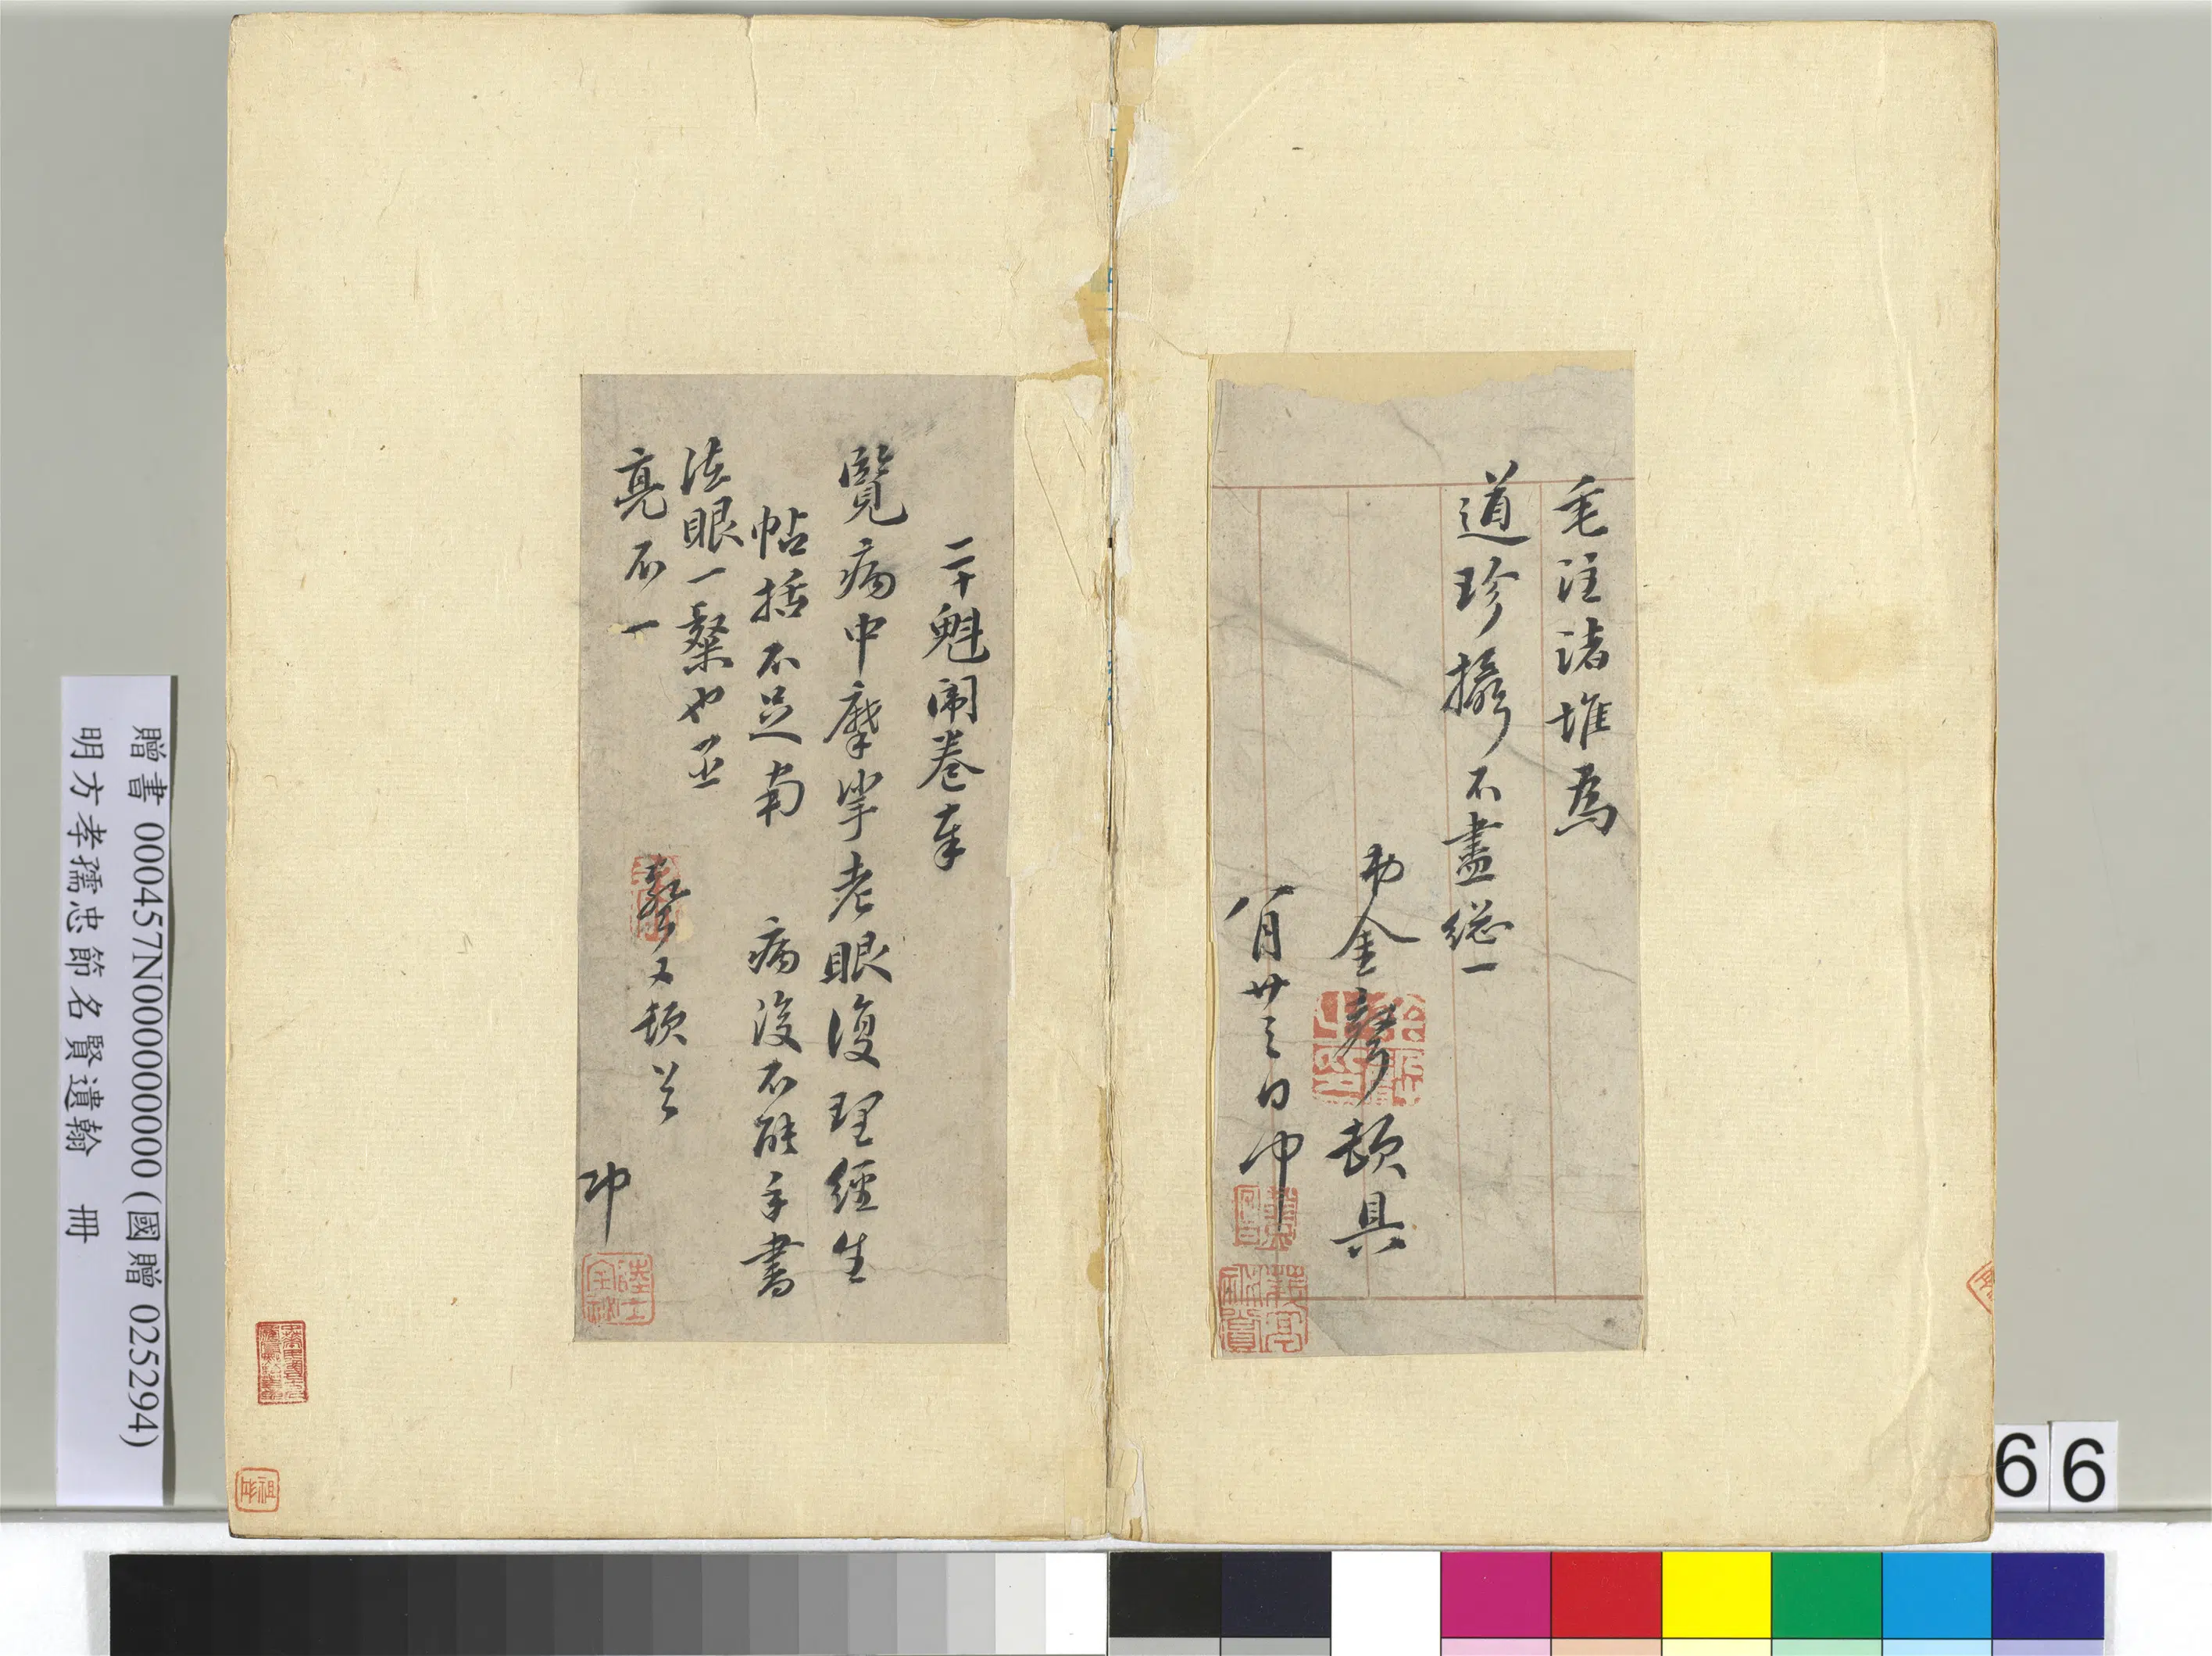 毛注諸堆為
道珍攝不盡總一
弟金聲頓具
八月廿三日沖
二十魁闈卷奉
覽病中摩挲老眼復理經生
帖括不足南
病後不能手書
法眼一粲也并
亮不一
聲又頓首
沖
贈書 000457N000000000 (國贈 025294)
明方孝孺忠節名賢遺翰 冊
66